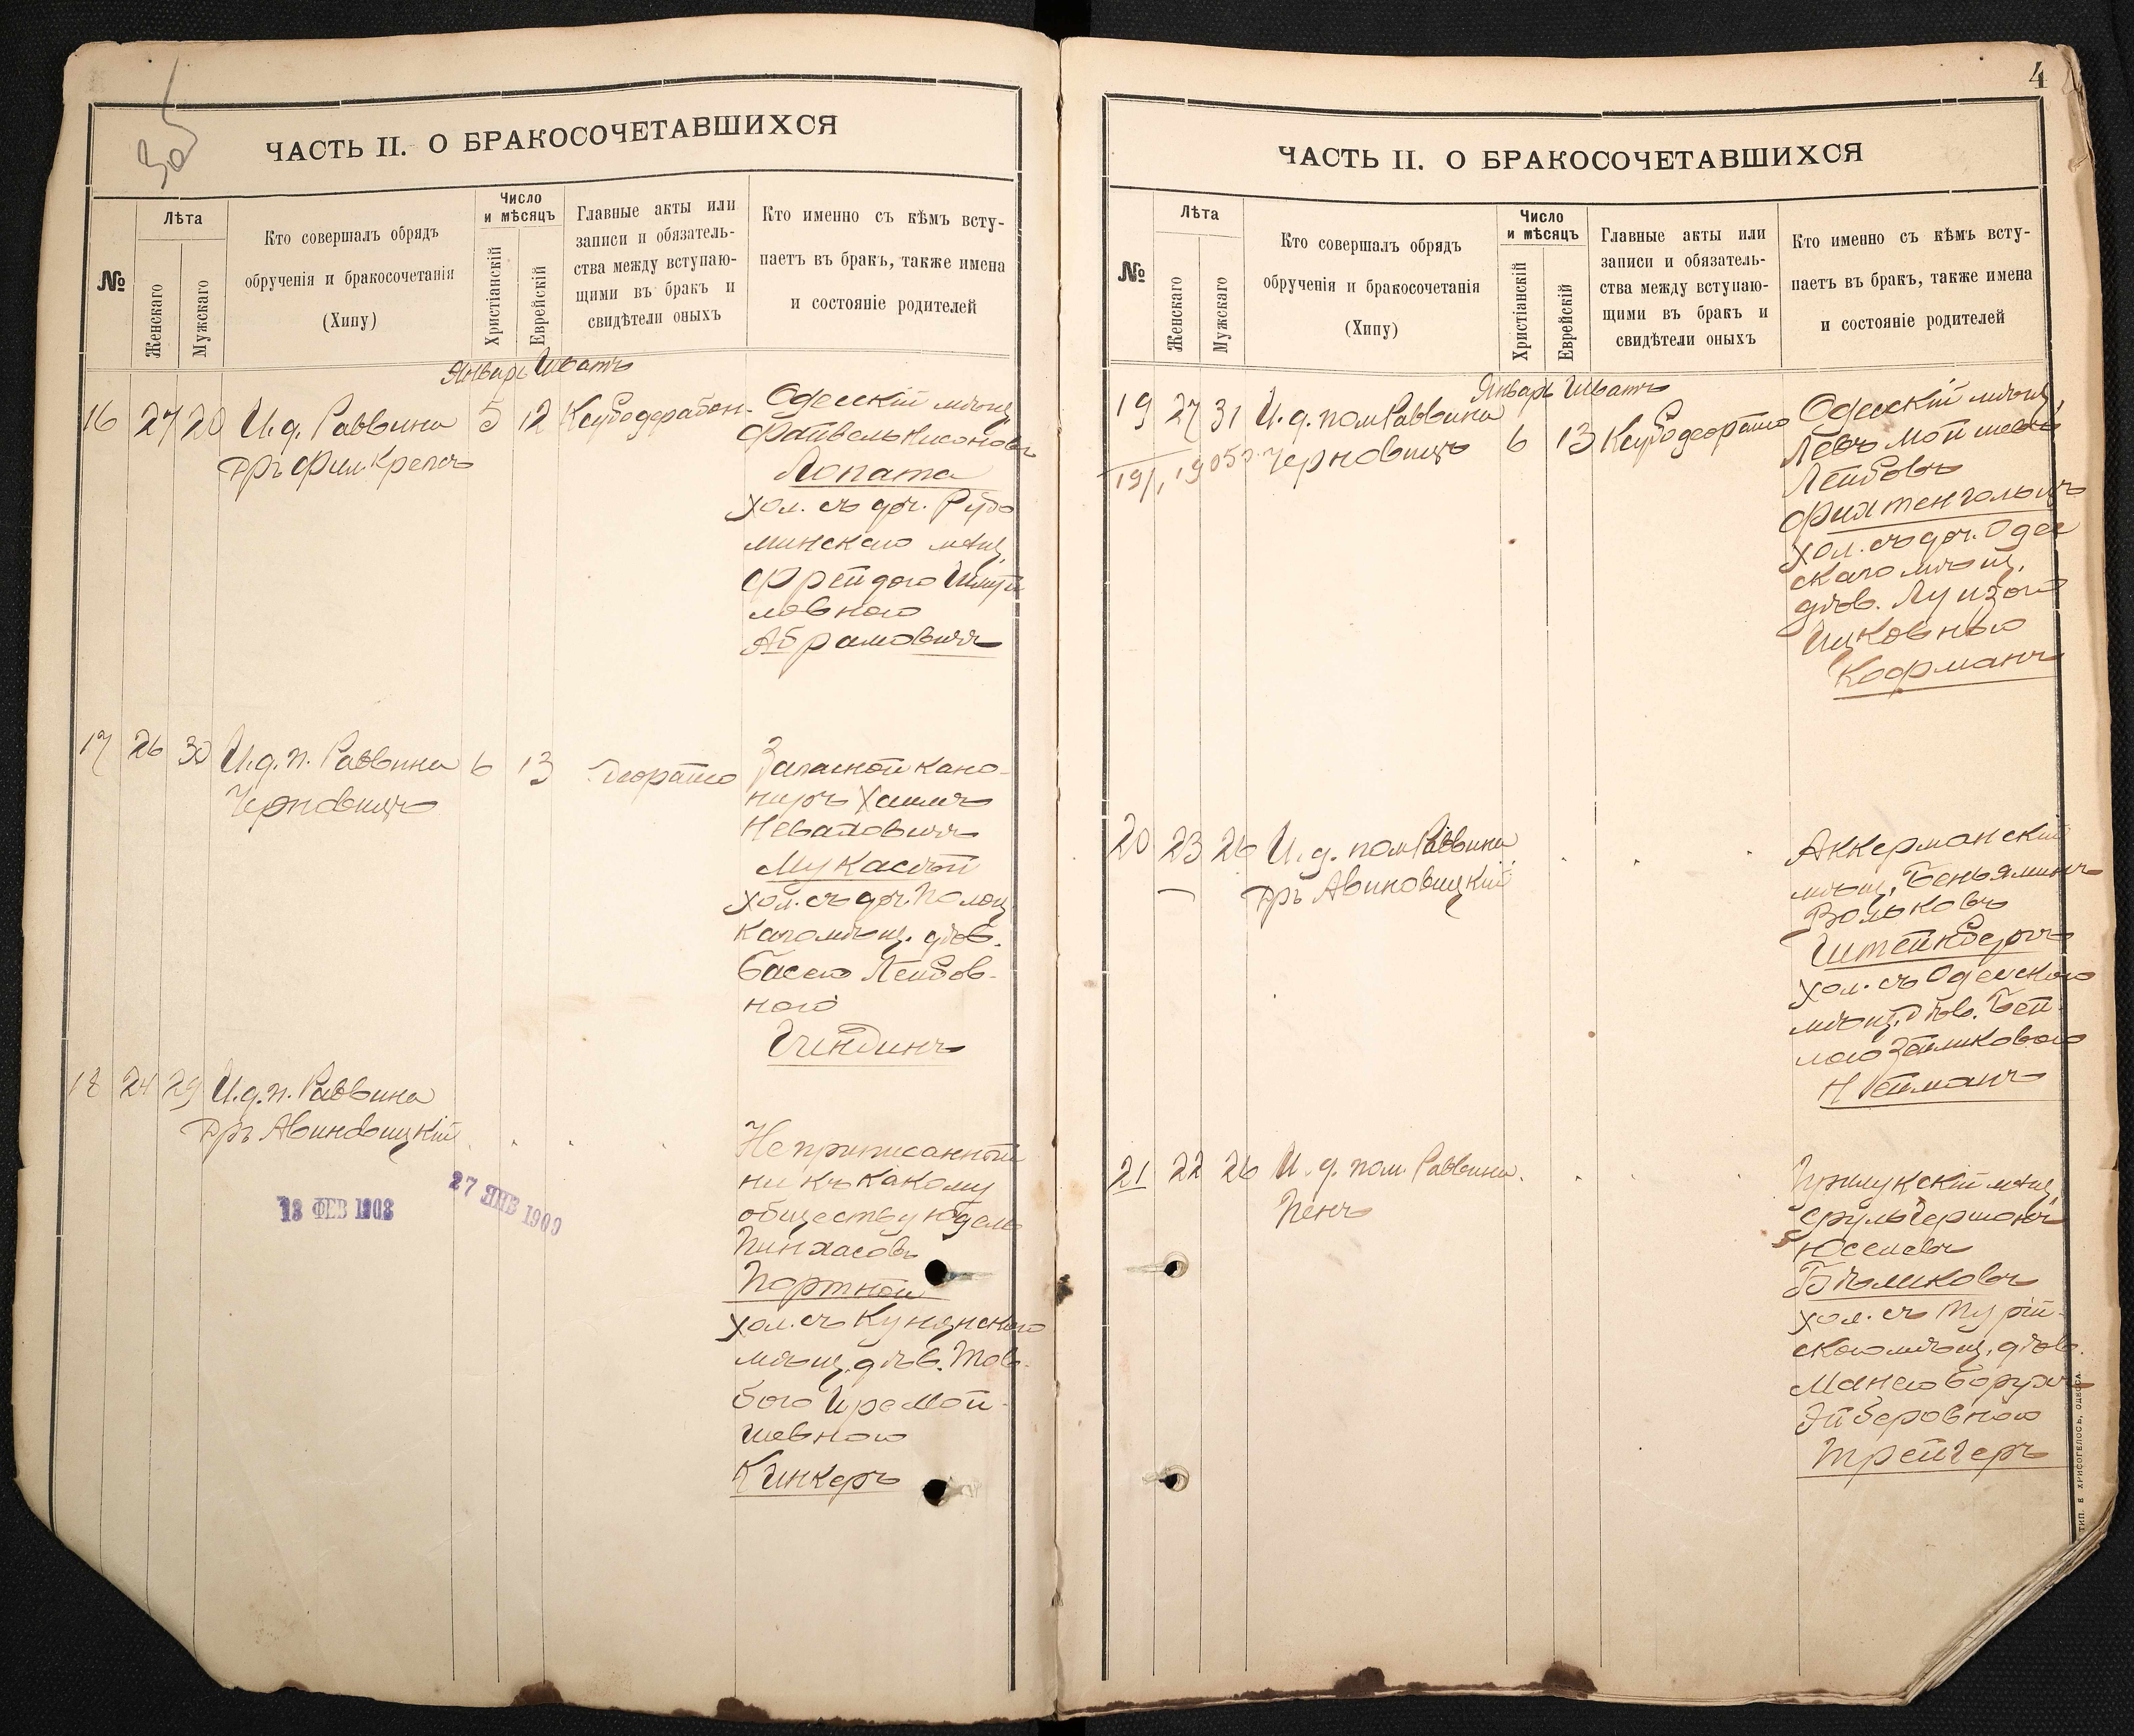 ЧАСТЬ II. О БРАКОСОЧЕТАВШИХСЯ
№
Лѣта
Женскаго
Мужскаго
Кто совершалъ обрядъ
обрученія и бракосочетанія
(Хипу)
Число
и мѣсяцъ
Христіанскій
Еврейскій
Главные акты или
записи и обязатель-
ства между вступаю-
щими въ бракъ и
свидѣтели оныхъ
Кто именно съ кѣмъ всту-
паетъ въ бракъ, также имена
и состояніе родителей
Январь Шватъ
16 27 20 И.д. Раввина 5 12
Одесскій мѣщ.
Файвель
Лопата
хол. съ дѣв.
минскаго мѣщ.
Фрейдою
левною
Абрамовичъ
17 26 30 И.д.п. Раввина 6 13
Черновицъ
Запасной кано-
ниръ Хаимъ
Неваховичъ
Мукасѣй
хол. съ дѣв. Полоц
каго мѣщ. дѣв.
Басею Лейбов-
ною
Гиндинъ
18 24 29 И.д.п. Раввина
Дръ Авиновицкій
Неприписанный
ни къ какому
обществу Юдель
Пинхасовъ
Портной
хол. съ
мѣщ. дѣв. Тов-
бою Мой-
шевною
Кинкеръ
13 ФЕВ 1903
27 ЯНВ 1909
4
ЧАСТЬ II. О БРАКОСОЧЕТАВШИХСЯ
№
Лѣта
Женскаго
Мужскаго
Кто совершалъ обрядъ
обрученія и бракосочетанія
(Хипу)
Число
и мѣсяцъ
Христіанскій
Еврейскій
Главные акты или
записи и обязатель-
ства между вступаю-
щими въ бракъ и
свидѣтели оныхъ
Кто именно съ кѣмъ всту-
паетъ въ бракъ, также имена
и состояніе родителей
Январь Шватъ
19 27 31 И.д. пом Раввина 6 13
Черновицъ
Одесскій мѣщ.
Левъ Мойшевъ
Лейбовъ
Фихтенгольцъ
хол. съ дѣв. Одес
скаго мѣщ.
дѣв. Луизой
Ицковною
Кофманъ
20 23 26 И.д. пом Раввина
Дръ Авиновицкій
Аккерманскій
мѣщ. Беньяминъ
Вольковъ
Штейнбергъ
хол. съ Одесскою
мѣщ. дѣв. Бей-
лою
Нейманъ
21 22 26 И.д. пом. Раввина
Пенъ
Прилукскій мѣщ.
Сруль Гершонъ
Юселевъ
Бѣликовъ
хол. съ
скою мѣщ. дѣв.
Манею Борухъ
Трейгеръ
ТИП. Е ХРИСОГЕЛОСЪ, ОДЕССА